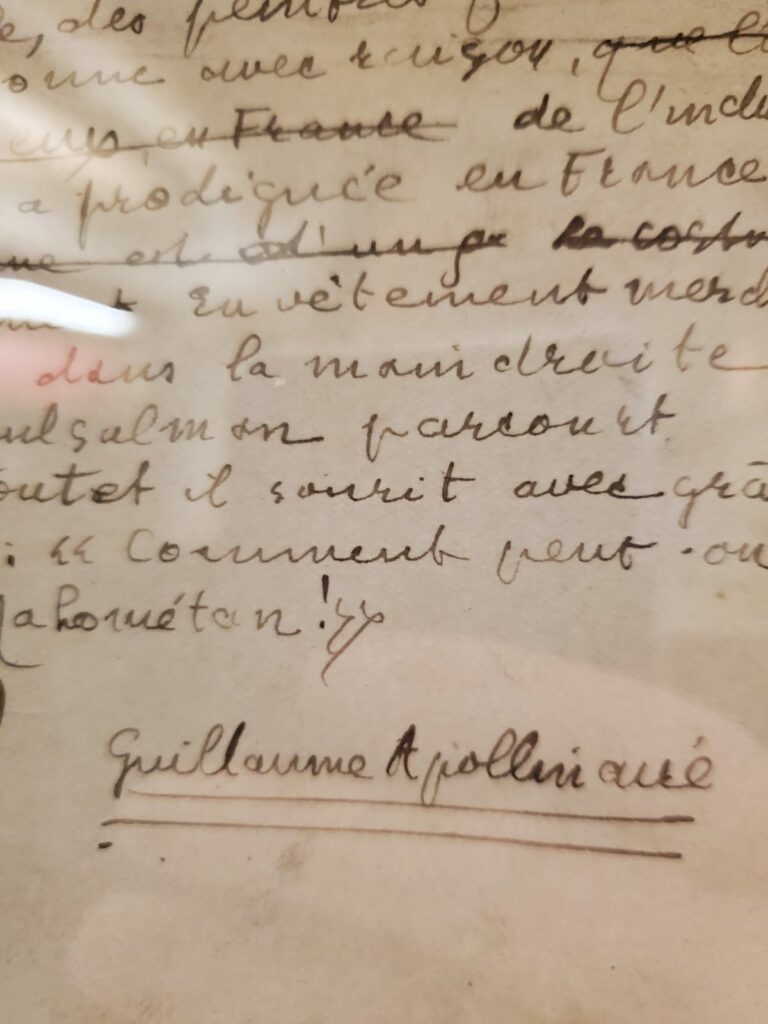 des peintres
onne avec raison, que l
en France de l'indu
a prodiguée en France
est d'un la costu
En vêtement merd
dans la main droite
ulsulman parcourt
outet il sourit avec grâ
: « Comment peut-on
Mahométan ! »
Guillaume Apollinaire